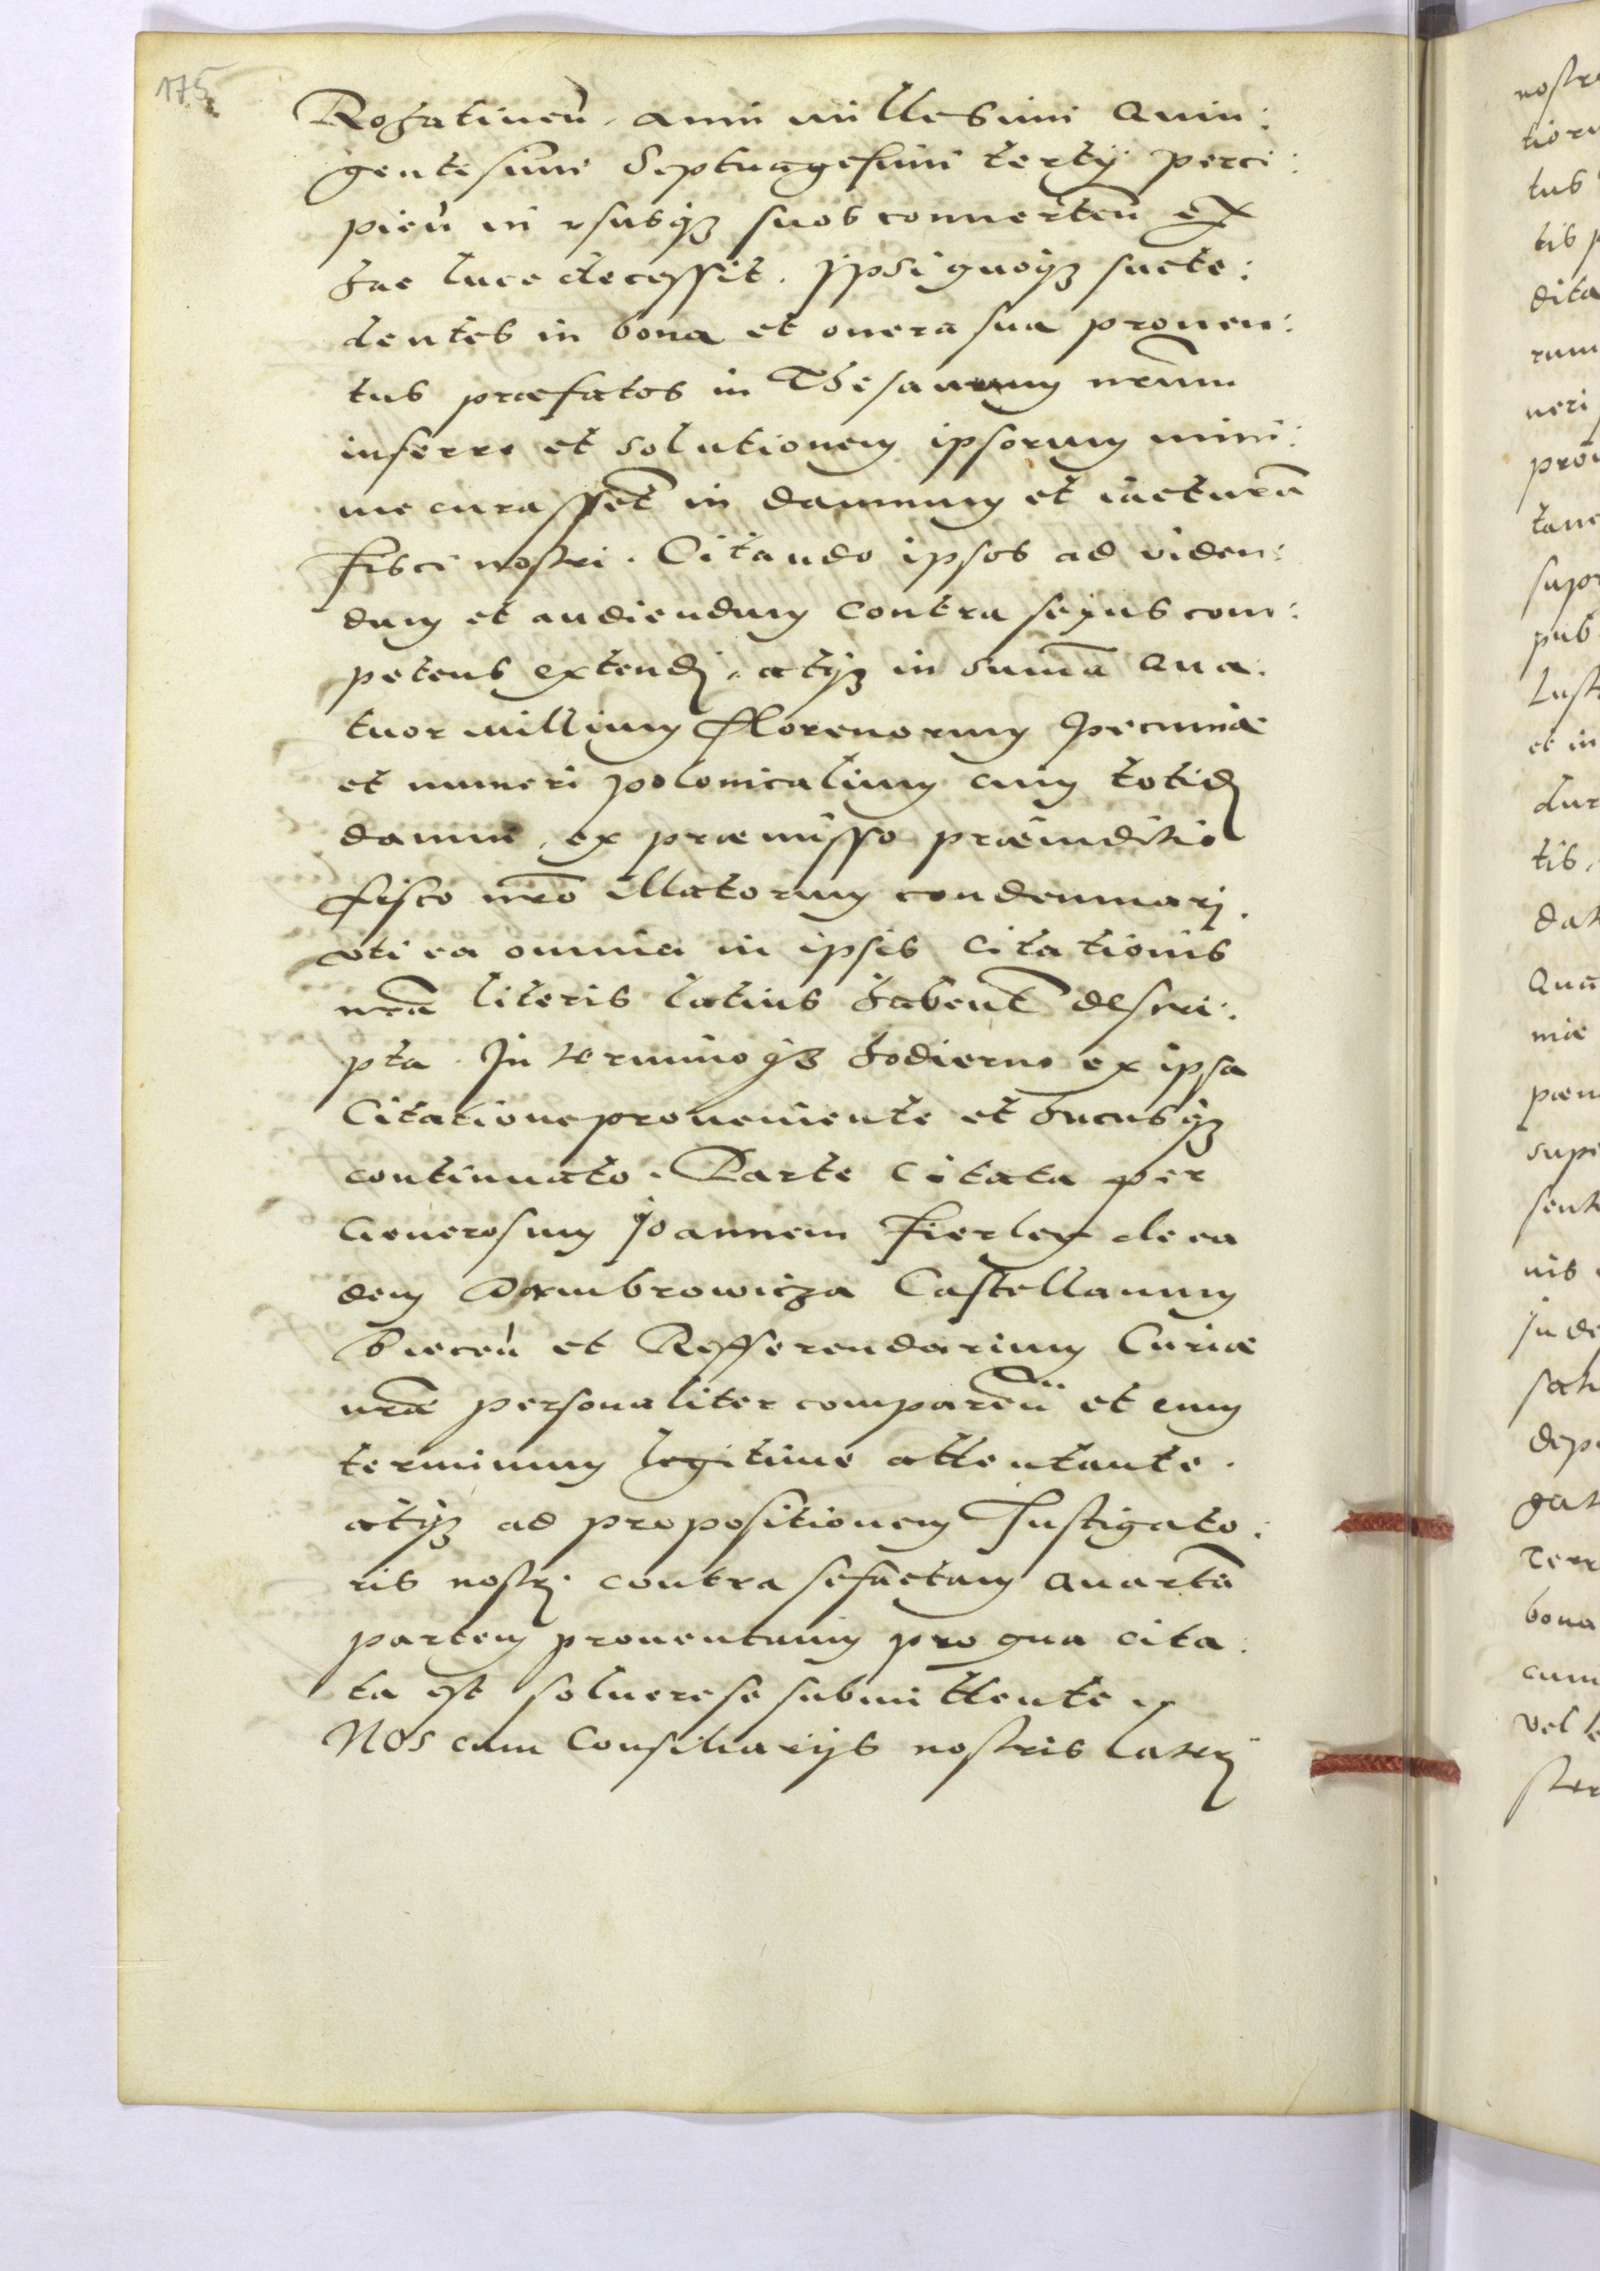 175
Rohatineñ. anni millesimi Quin:
gentesimi Septuagesimi tertij perci:
pieñ in vsusq3 suos conuerteñ ex
hac luce decessit. Ipsi quoq3 succe:
dentes in bona et onera sua prouen:
tus præfatos in Thesaurum nrũm
inferre et solutionem ipsorum mini:
me curassēt in damnum et iacturā
fisci nostri. Citando ipsos ad viden:
dum et audiendum contra se jus com:
petens extendj, atq3 in sumā Qua:
tuor millium florenorum pecuniæ
et numeri polonicalium cum totid
damni, ex præmisso præiuditio
fisco nrō illatorum condemnarj.
vti ea omnia in ipsis Citationis
nrā literis latius habenť descri:
pta. In terminoq3 hodierno ex ipsa
Citatione proueniente et hucusq3
continuato. Parte Citata per
Generosum Joannem Fierley de ea
dem Dambrowicza Castellanum
Bieceñ et Refferendarium Curiæ
nrā personaliter compareñ et eum
terminum legitime attentante.
atq3 ad propositionem Instigato:
ris nostrj contra se factam Quartā
partem prouentuum pro qua cita:
ta est soluere se submittente
Nos cum Consiliarijs nostris Laterj